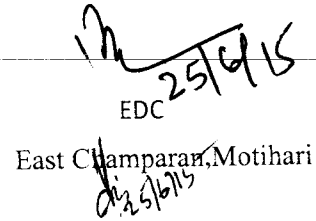 25/6/15
EDC
East Champaran,Motihari
25/6/15